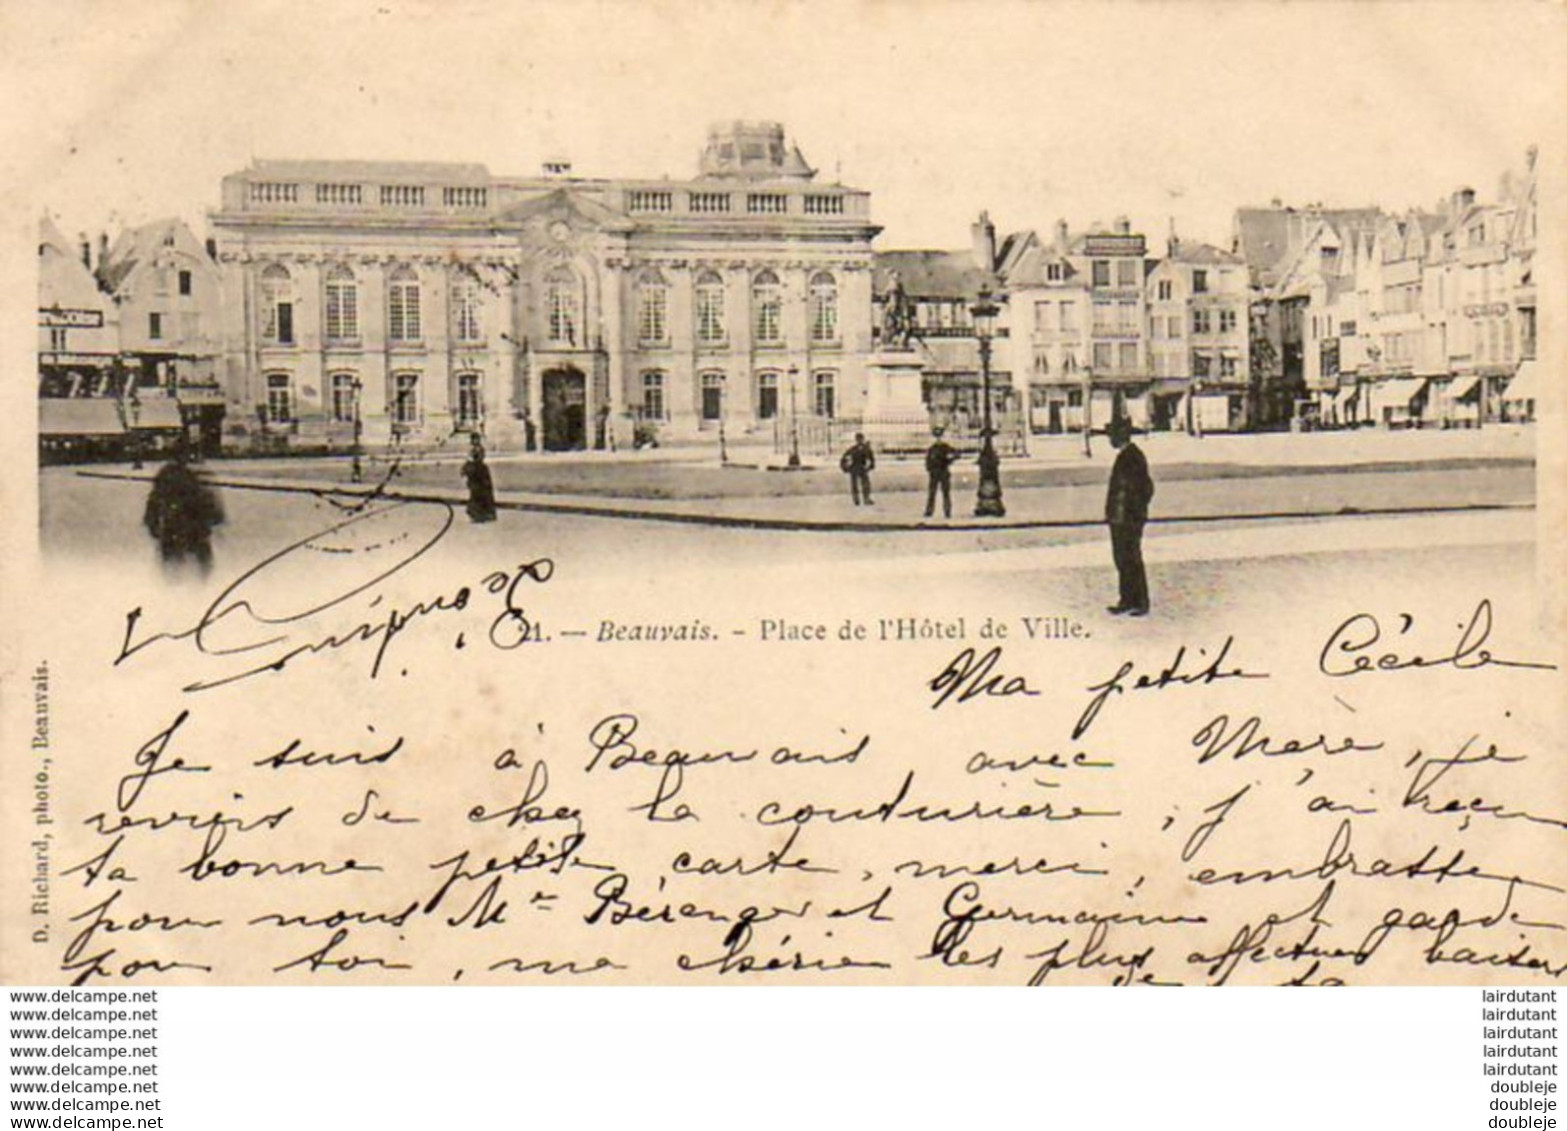 21. — Beauvais. - Place de l'Hôtel de Ville.
D. Richard, photo., Beauvais.
Ma petite Cécile
Je suis à Beauvais avec Mère, je
reviens de chez la couturière, j'ai reçu
ta bonne petite carte, merci, embrasse
pour nous Me Bérenger et Germaine et garde
pour toi, ma chérie les plus affectueux baisers
de ta
www.delcampe.net
www.delcampe.net
www.delcampe.net
www.delcampe.net
www.delcampe.net
www.delcampe.net
www.delcampe.net
www.delcampe.net
lairdutant
lairdutant
lairdutant
lairdutant
lairdutant
doubleje
doubleje
doubleje